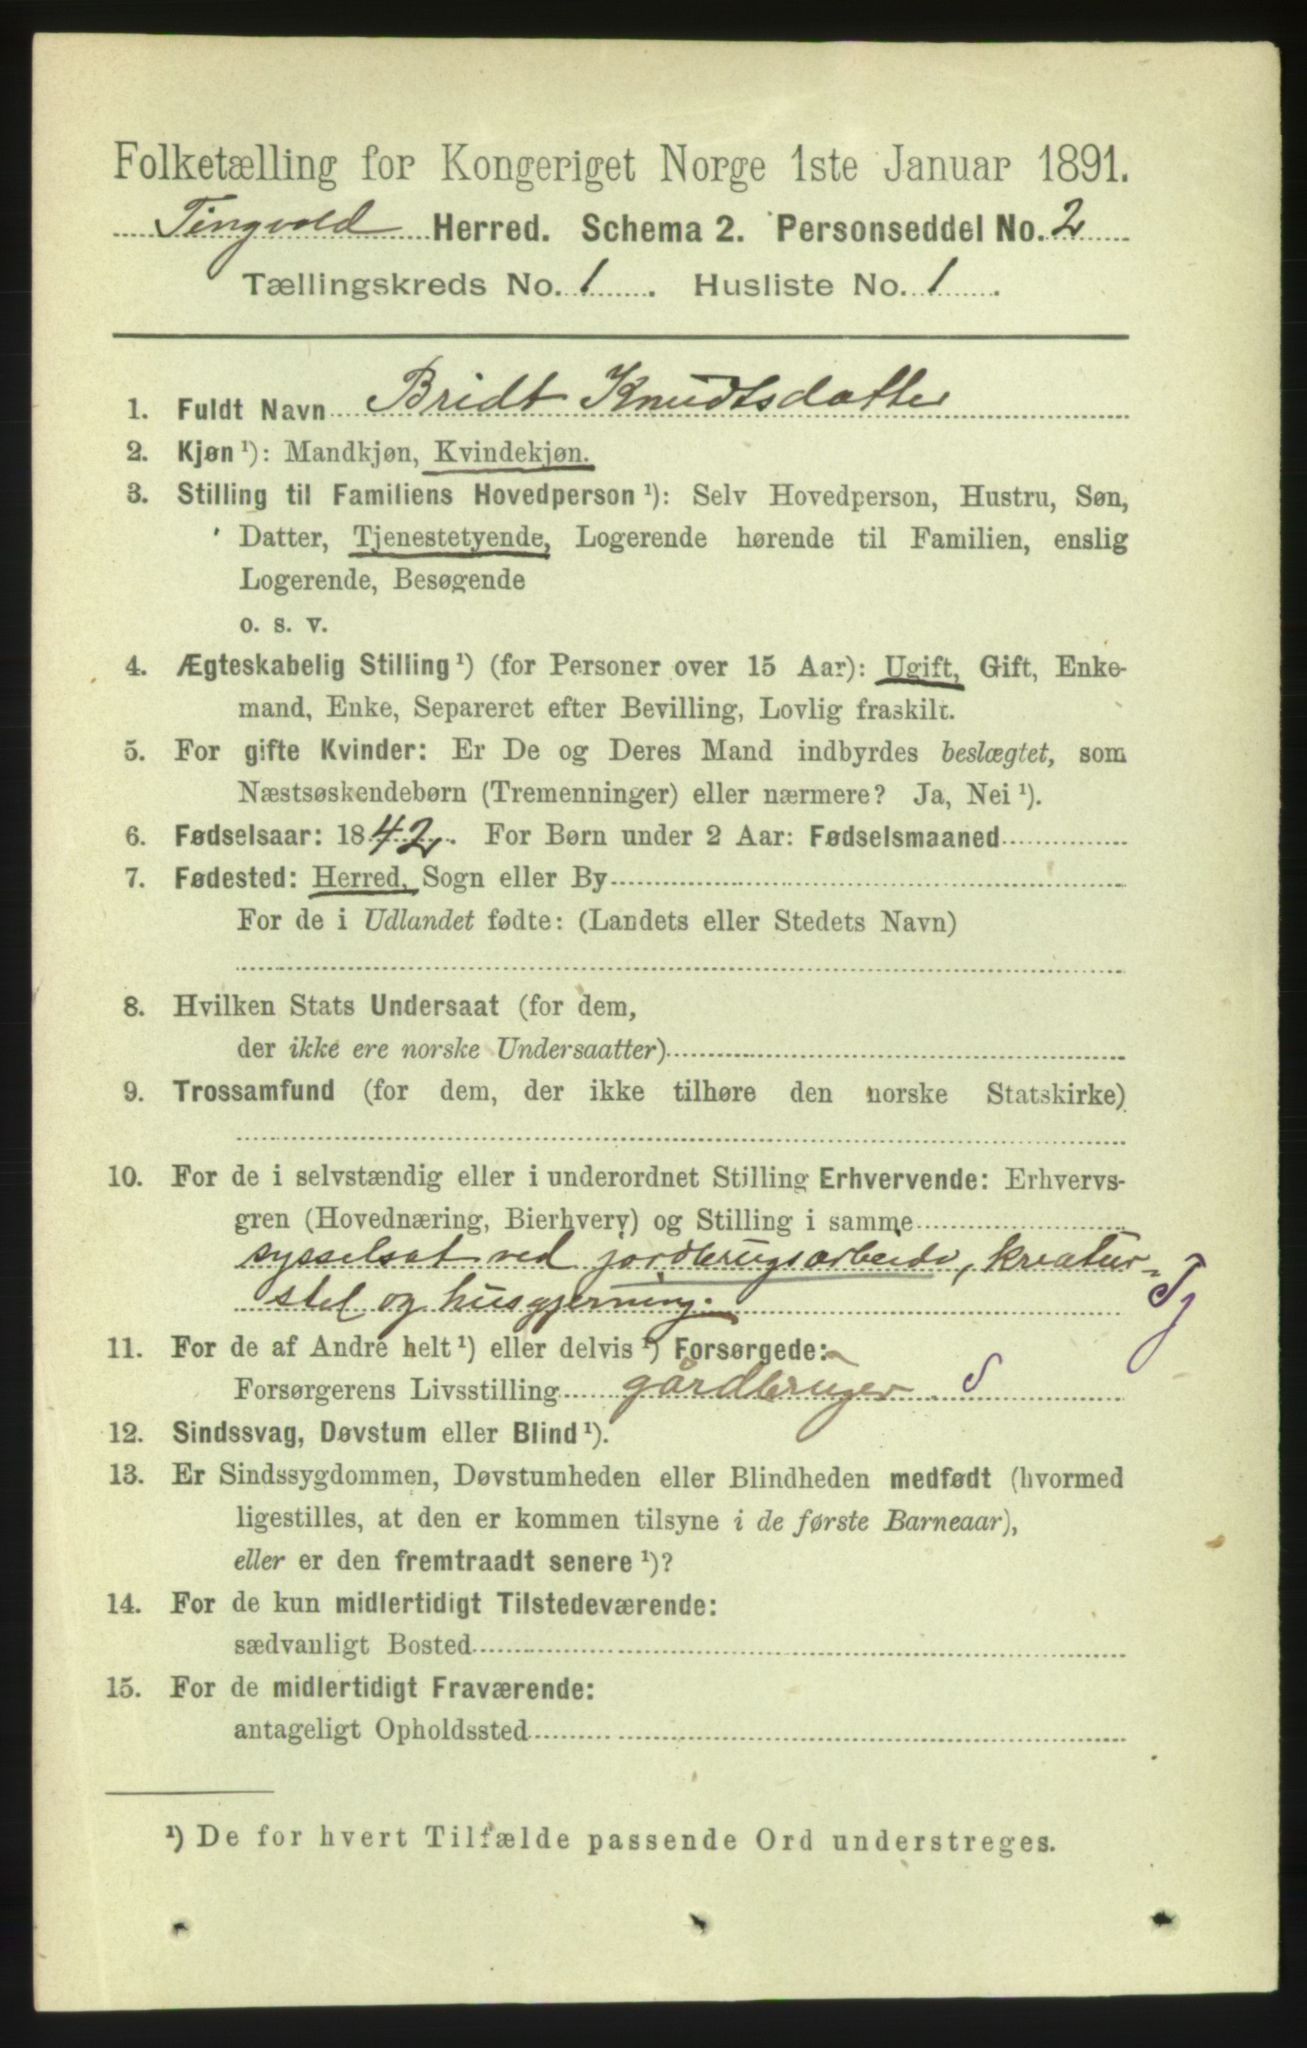 Folketælling for Kongeriget Norge 1ste Januar 1891.
Tingvold Herred. Schema 2. Personseddel No. 2
Tællingskreds No. 1. Husliste No. 1.
1. Fuldt Navn Bridt Knudtsdatter
2. Kjøn ¹): Mandkjøn, Kvindekjøn.
3. Stilling til Familiens Hovedperson ¹): Selv Hovedperson, Hustru, Søn,
Datter, Tjenestetyende, Logerende hørende til Familien, enslig
Logerende, Besøgende
o. s. v.
4. Ægteskabelig Stilling ¹) (for Personer over 15 Aar): Ugift, Gift, Enke-
mand, Enke, Separeret efter Bevilling, Lovlig fraskilt.
5. For gifte Kvinder: Er De og Deres Mand indbyrdes beslægtet, som
Næstsøskendebørn (Tremenninger) eller nærmere? Ja, Nei ¹).
6. Fødselsaar: 1842. For Børn under 2 Aar: Fødselsmaaned
7. Fødested: Herred, Sogn eller By
For de i Udlandet fødte: (Landets eller Stedets Navn)
8. Hvilken Stats Undersaat (for dem,
der ikke ere norske Undersaatter)
9. Trossamfund (for dem, der ikke tilhøre den norske Statskirke)
10. For de i selvstændig eller i underordnet Stilling Erhvervende: Erhvervs-
gren (Hovednæring, Bierhverv) og Stilling i samme
sysselsat ved jordbrugsarbeide, kreatur-
stel og husgjerning. Tj
11. For de af Andre helt ¹) eller delvis ¹) Forsørgede:
Forsørgerens Livsstilling gårdbruger. S
12. Sindssvag, Døvstum eller Blind ¹).
13. Er Sindssygdommen, Døvstumheden eller Blindheden medfødt (hvormed
ligestilles, at den er kommen tilsyne i de første Barneaar),
eller er den fremtraadt senere ¹)?
14. For de kun midlertidigt Tilstedeværende:
sædvanligt Bosted
15. For de midlertidigt Fraværende:
antageligt Opholdssted
¹) De for hvert Tilfælde passende Ord understreges.